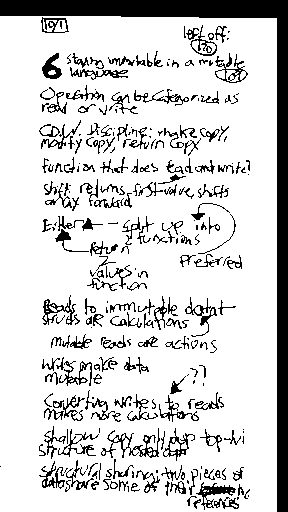 10/1
left off:
120
6 Staying immutable in a mutable
language
109
Operation can be categorized as
read or write
C.O.W. Discipline: make copy,
modify copy, return copy
function that does read and write?
shift returns first value, shifts
array forward
Either split up into
2 functions
return
2
values in
function
Preferred
Reads to immutable data
structs are calculations
mutable reads are actions
writes make data
mutable
??
Converting writes to reads
makes more calculations
shallow copy only dup top-lvl
structure of nested data
structural sharing: two pieces of
data share some of their
references